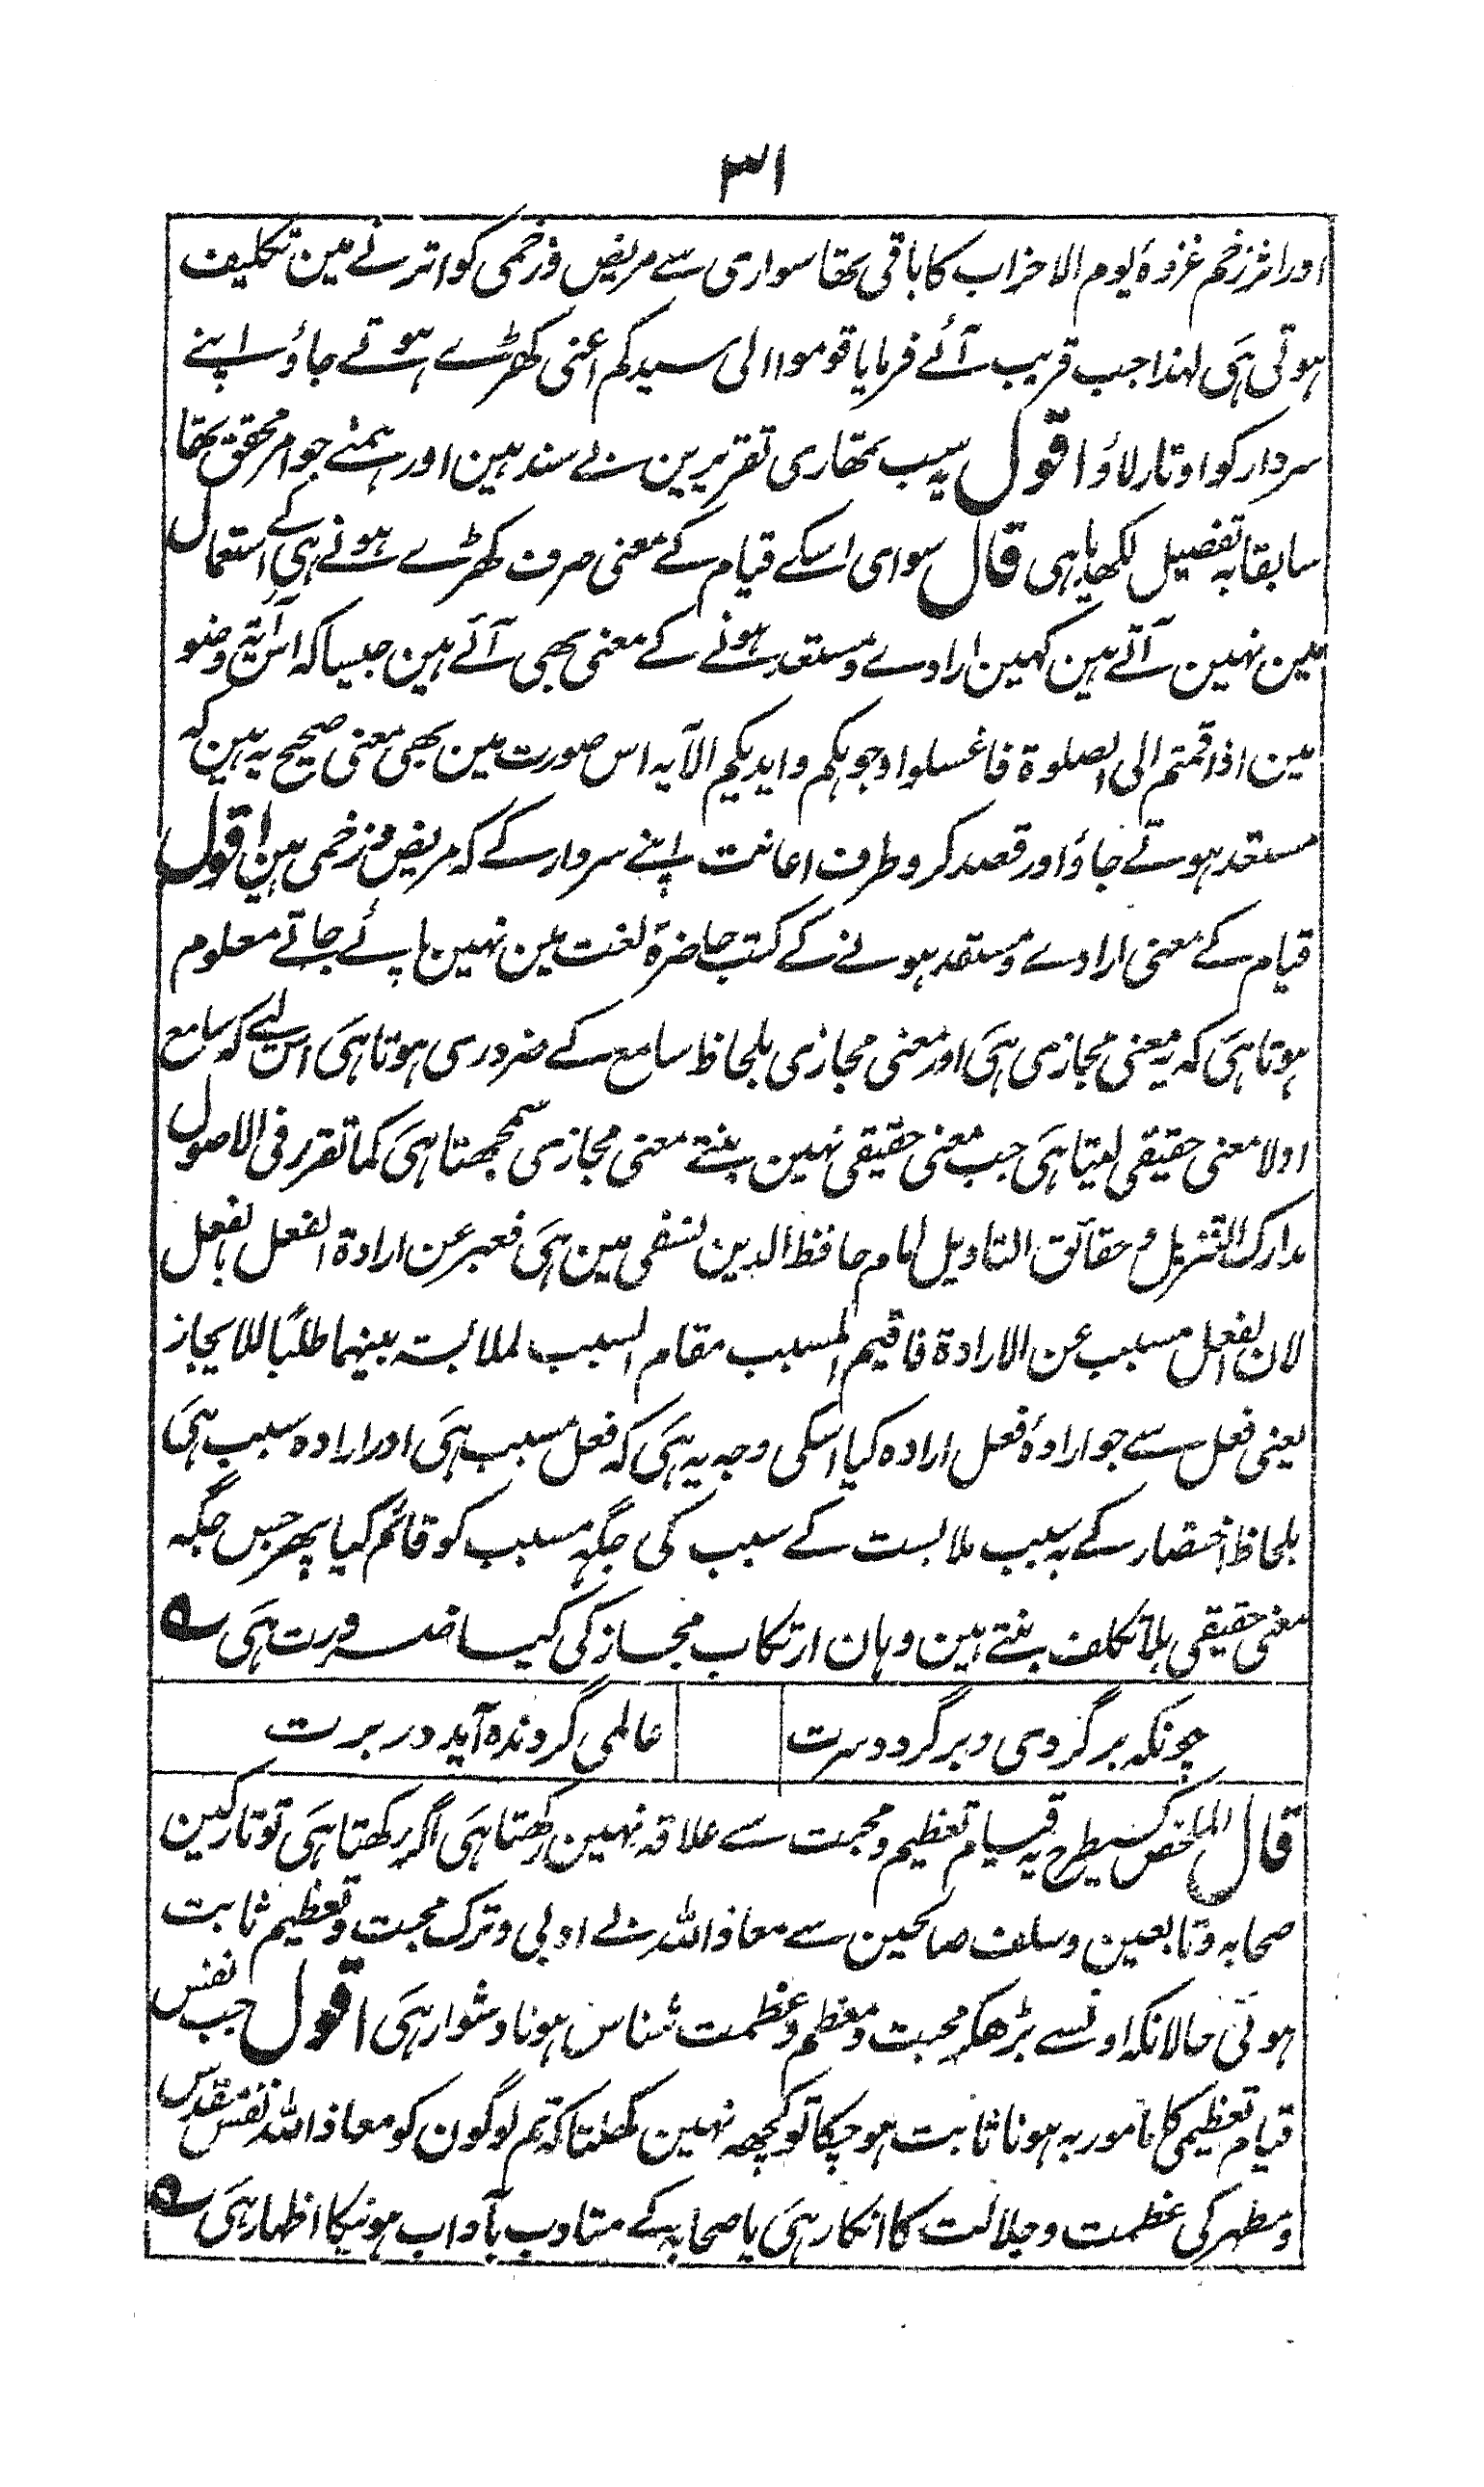 ۳۱
اور اثر زخم غزوۂ یوم الاحزاب کا باقی تھا سواری سے مریض و زخمی کو اترنے مین تکلیف
ہوتی ہی لہذا جب قریب آئے فرمایا قوموا الی سیدکم اعنی کھڑے ہوتے جاؤ اپنے
سردار کو اوتار لاؤ اقول یہ سب تمھاری تقریرین بے سند ہین اور ہمنے جو امر محقق تھا
سابقا بہ تفصیل لکھدیا ہی قال سوای اسکے قیام کے معنی صرف کھڑے ہونے ہی کے استعمال
مین نہین آتے ہین کہین ارادے و مستعد ہونے کے معنی بھی آئے ہین جیسا کہ اس آیۂ وضو
مین اذا قمتم الی الصلوۃ فاغسلوا وجوہکم و ایدیکم الآیہ اس صورت مین بھی معنی صحیح یہ ہین کہ
مستعد ہوتے جاؤ اور قصد کرو طرف اعانت اپنے سردار کے کہ مریض و زخمی ہین اقول
قیام کے معنی ارادے و مستعد ہونے کے کتب حاضرۂ لغت مین نہین پائے جاتے معلوم
ہوتا ہی کہ یہ معنی مجازی ہی اور معنی مجازی بلحاظ سامع کے ضروری ہوتا ہی اس لیے کہ سامع
اولا معنی حقیقی لیتا ہی جب معنی حقیقی نہین بنتے معنی مجازی سمجھتا ہی کما تقرر فی الاصول
مدارک التنزیل و حقائق التاویل امام حافظ الدین نسفی مین ہی فعبر عن ارادۃ الفعل بالفعل
لان الفعل مسبب عن الارادۃ فاقیم المسبب مقام السبب لملابستہ بینہما طلبًا للایجاز
یعنی فعل سے جو ارادۂ فعل ارادہ کیا اسکی وجہ یہ ہی کہ فعل مسبب ہی اور ارادہ سبب ہی
بلحاظ اختصار کے بہ سبب ملابست کے سبب کی جگہ مسبب کو قائم کیا پھر جس جگہ
معنی حقیقی بلا تکلف بنتے ہین وہان ارتکاب مجاز کی کیا ضرورت ہی ؎
چونکہ برگردی و برگردد سرت
عالمی گردندہ آید در برت
قال الملخص کسیطرح یہ قیام تعظیم و محبت سے علاقہ نہین رکھتا ہی اگر رکھتا ہی تو تارکین
صحابہ و تابعین و سلف صالحین سے معاذ اللہ بے ادبی و ترک محبت و تعظیم ثابت
ہوتی حالانکہ اونسے بڑھکر محبت و معظم و عظمت شناس ہونا دشوار ہی اقول جب نفس
قیام تعظیمی کا مامور بہ ہونا ثابت ہو چکا تو کچھ نہین کھلتا کہ تم لوگون کو معاذ اللہ نفس مقدس
و مطہر کی عظمت و جلالت کا انکار ہی یا صحابہ کے متادب بآداب ہونیکا اظہار ہی ؎